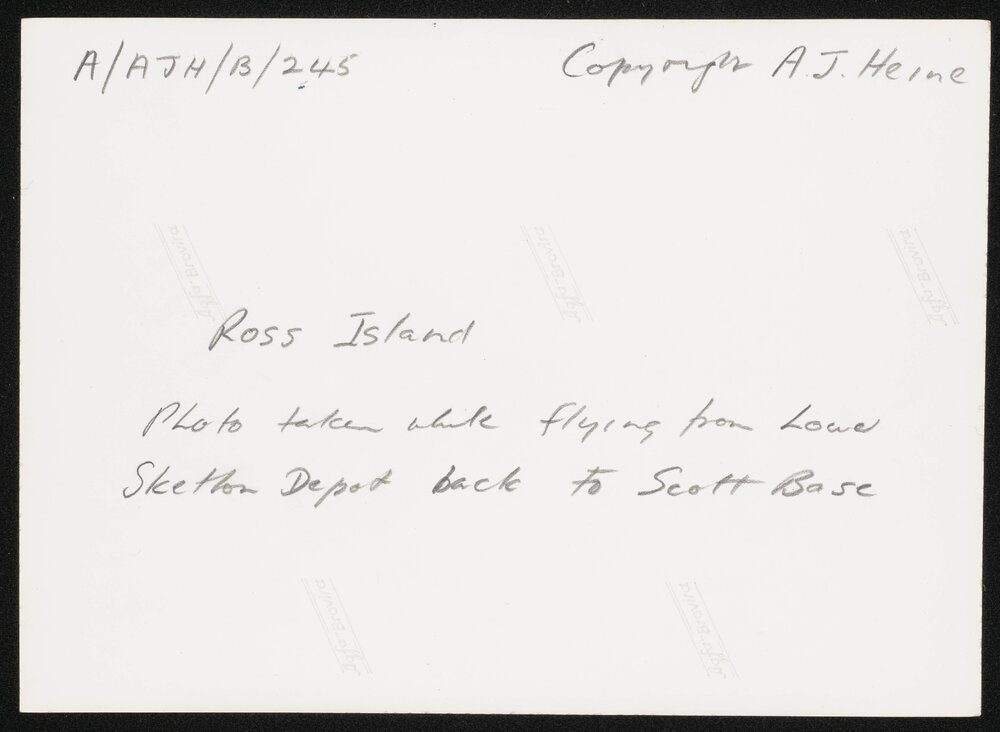 A/AJH/B/245
Copyright A.J. Heine
Agfa-Brovira
Agfa-Brovira
Agfa-Brovira
Ross Island
Photo taken while flying from Lower
Skelton Depot back to Scott Base
Agfa-Brovira
Agfa-Brovira